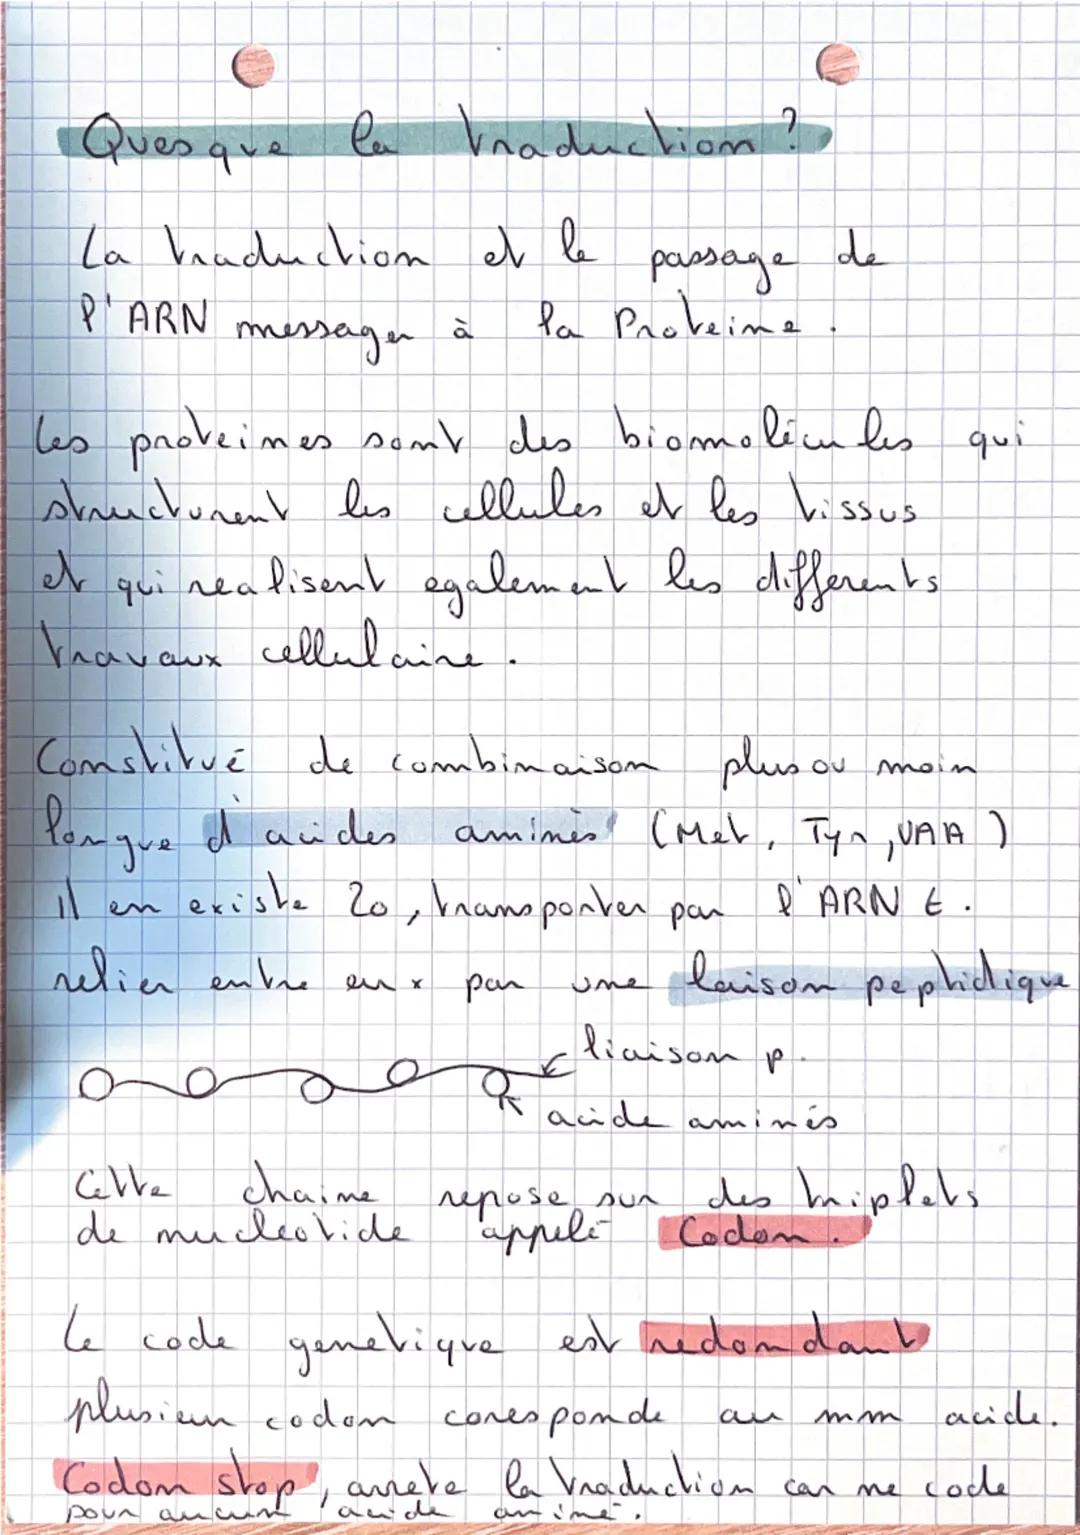 Quesque la traduction ?
La traduction et le passage de
l'ARN messager à la Proteine.
Les proteines sont des biomolécules qui
structurent les cellules et les tissus
et qui realisent egalement les differents
travaux cellulaire.
Constitué de combinaison plus ou moin
longue d'acides aminés (Met, Tyr, UAA)
il en existe 20, transporter par l'ARN t.
relier entre eux par une laison peptidique
liaison p.
acide aminés
Cette chaine repose sur des triplets
de nucleotide appelé Codon.
Le code genetique est redondant
plusieur codon coresponde au mm acide.
Codon stop, arrete la traduction car ne code
pour aucun acide aminé.